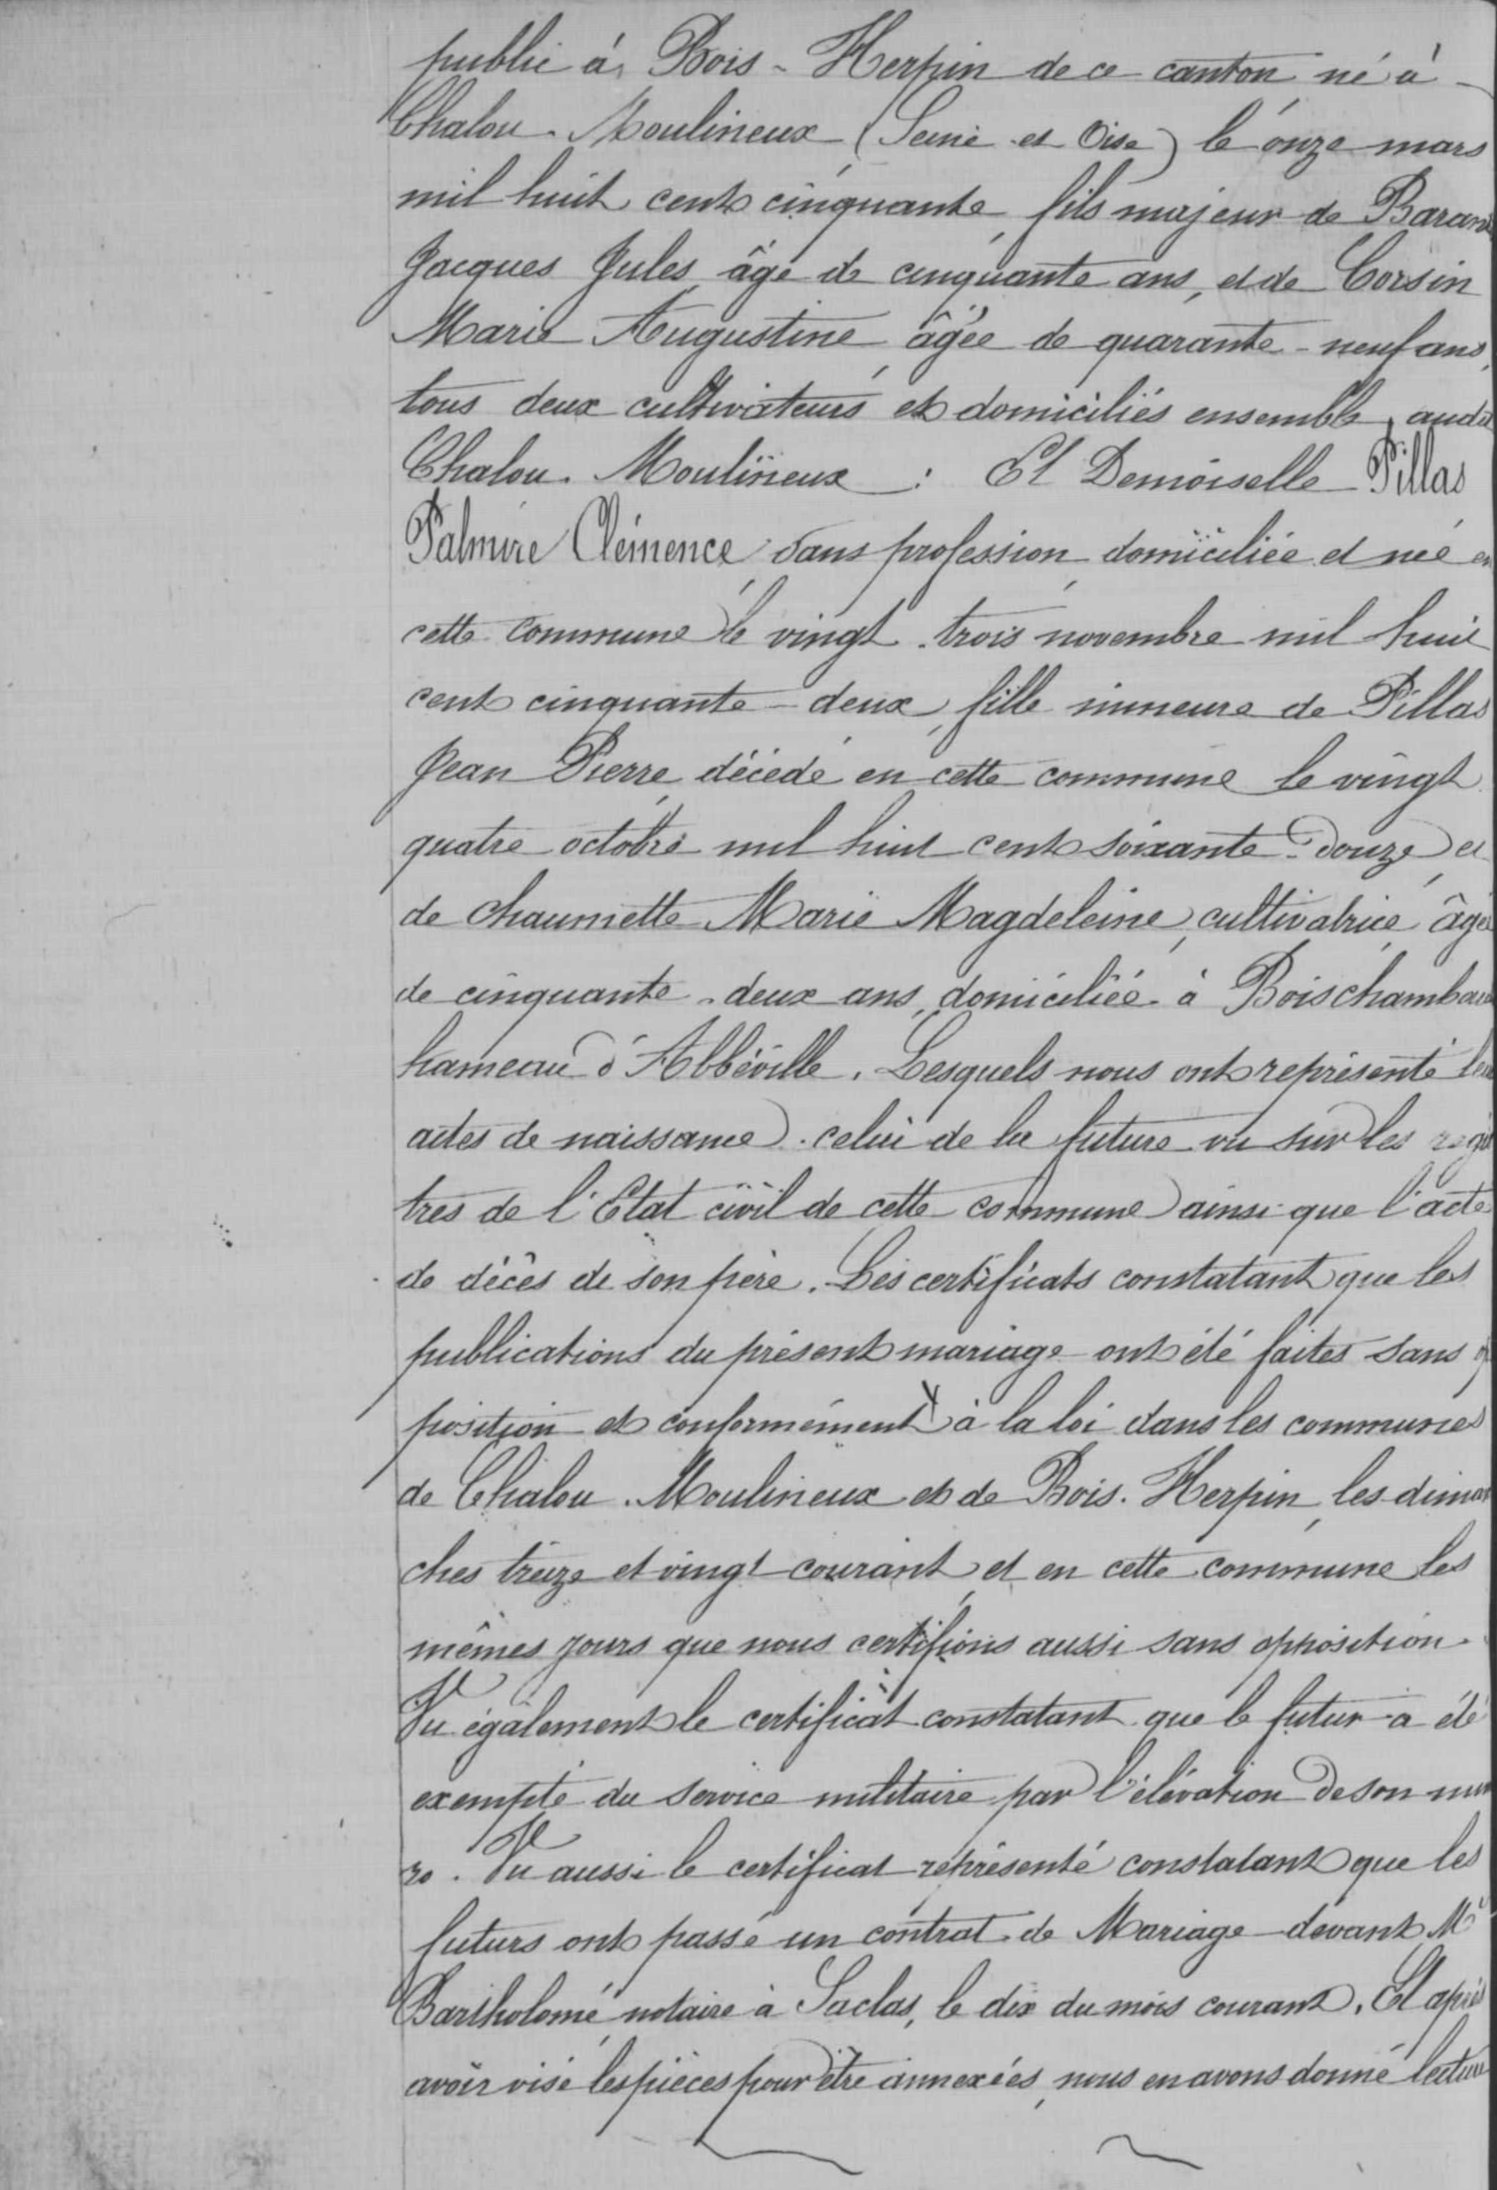 publié à Bois-Herpin de ce canton né à
Chalou-Moulineux (Seine et Oise) le onze mars
mil huit cent cinquante, fils majeur de
Jacques Jules, âgé de cinquante ans, et de Corsin
Marie Augustine, âgée de quarante-neuf ans,
tous deux cultivateurs et domiciliés ensemble, audit
Chalou-Moulineux : Et Demoiselle Pillas
Palmire Clémence sans profession, domiciliée et née en
cette commune le vingt-trois novembre mil huit
cent cinquante-deux, fille mineure de Pillas
Jean Pierre décédé en cette commune le vingt
quatre octobre mil huit cent soixante-douze, et
de Chaumette Marie Magdeleine, cultivatrice, âgée
de cinquante-deux ans, domiciliée à Boischambau
hameau d'Abbéville. Lesquels nous ont représenté leu
actes de naissance. celui de la future vu sur les regis
tres de l'Etat civil de cette commune ainsi que l'acte
de décès de son père. Les certificats constatant que les
publications du présent mariage ont été faites sans op
position et conformément à la loi dans les communes
de Chalou-Moulineux et de Bois-Herpin, les diman
ches treize et vingt courant, et en cette commune les
mêmes jours que nous certifions aussi sans opposition.
Vu également le certificat constatant que le futur a été
exempté du service militaire par l'élévation de son numé
ro. Vu aussi le certificat représenté constatant que les
futurs ont passé un contrat de Mariage devant Me
Bartholomé, notaire à Saclas, le dix du mois courant. Et après
avoir visé les pièces pour être annexées, nous en avons donné lecture